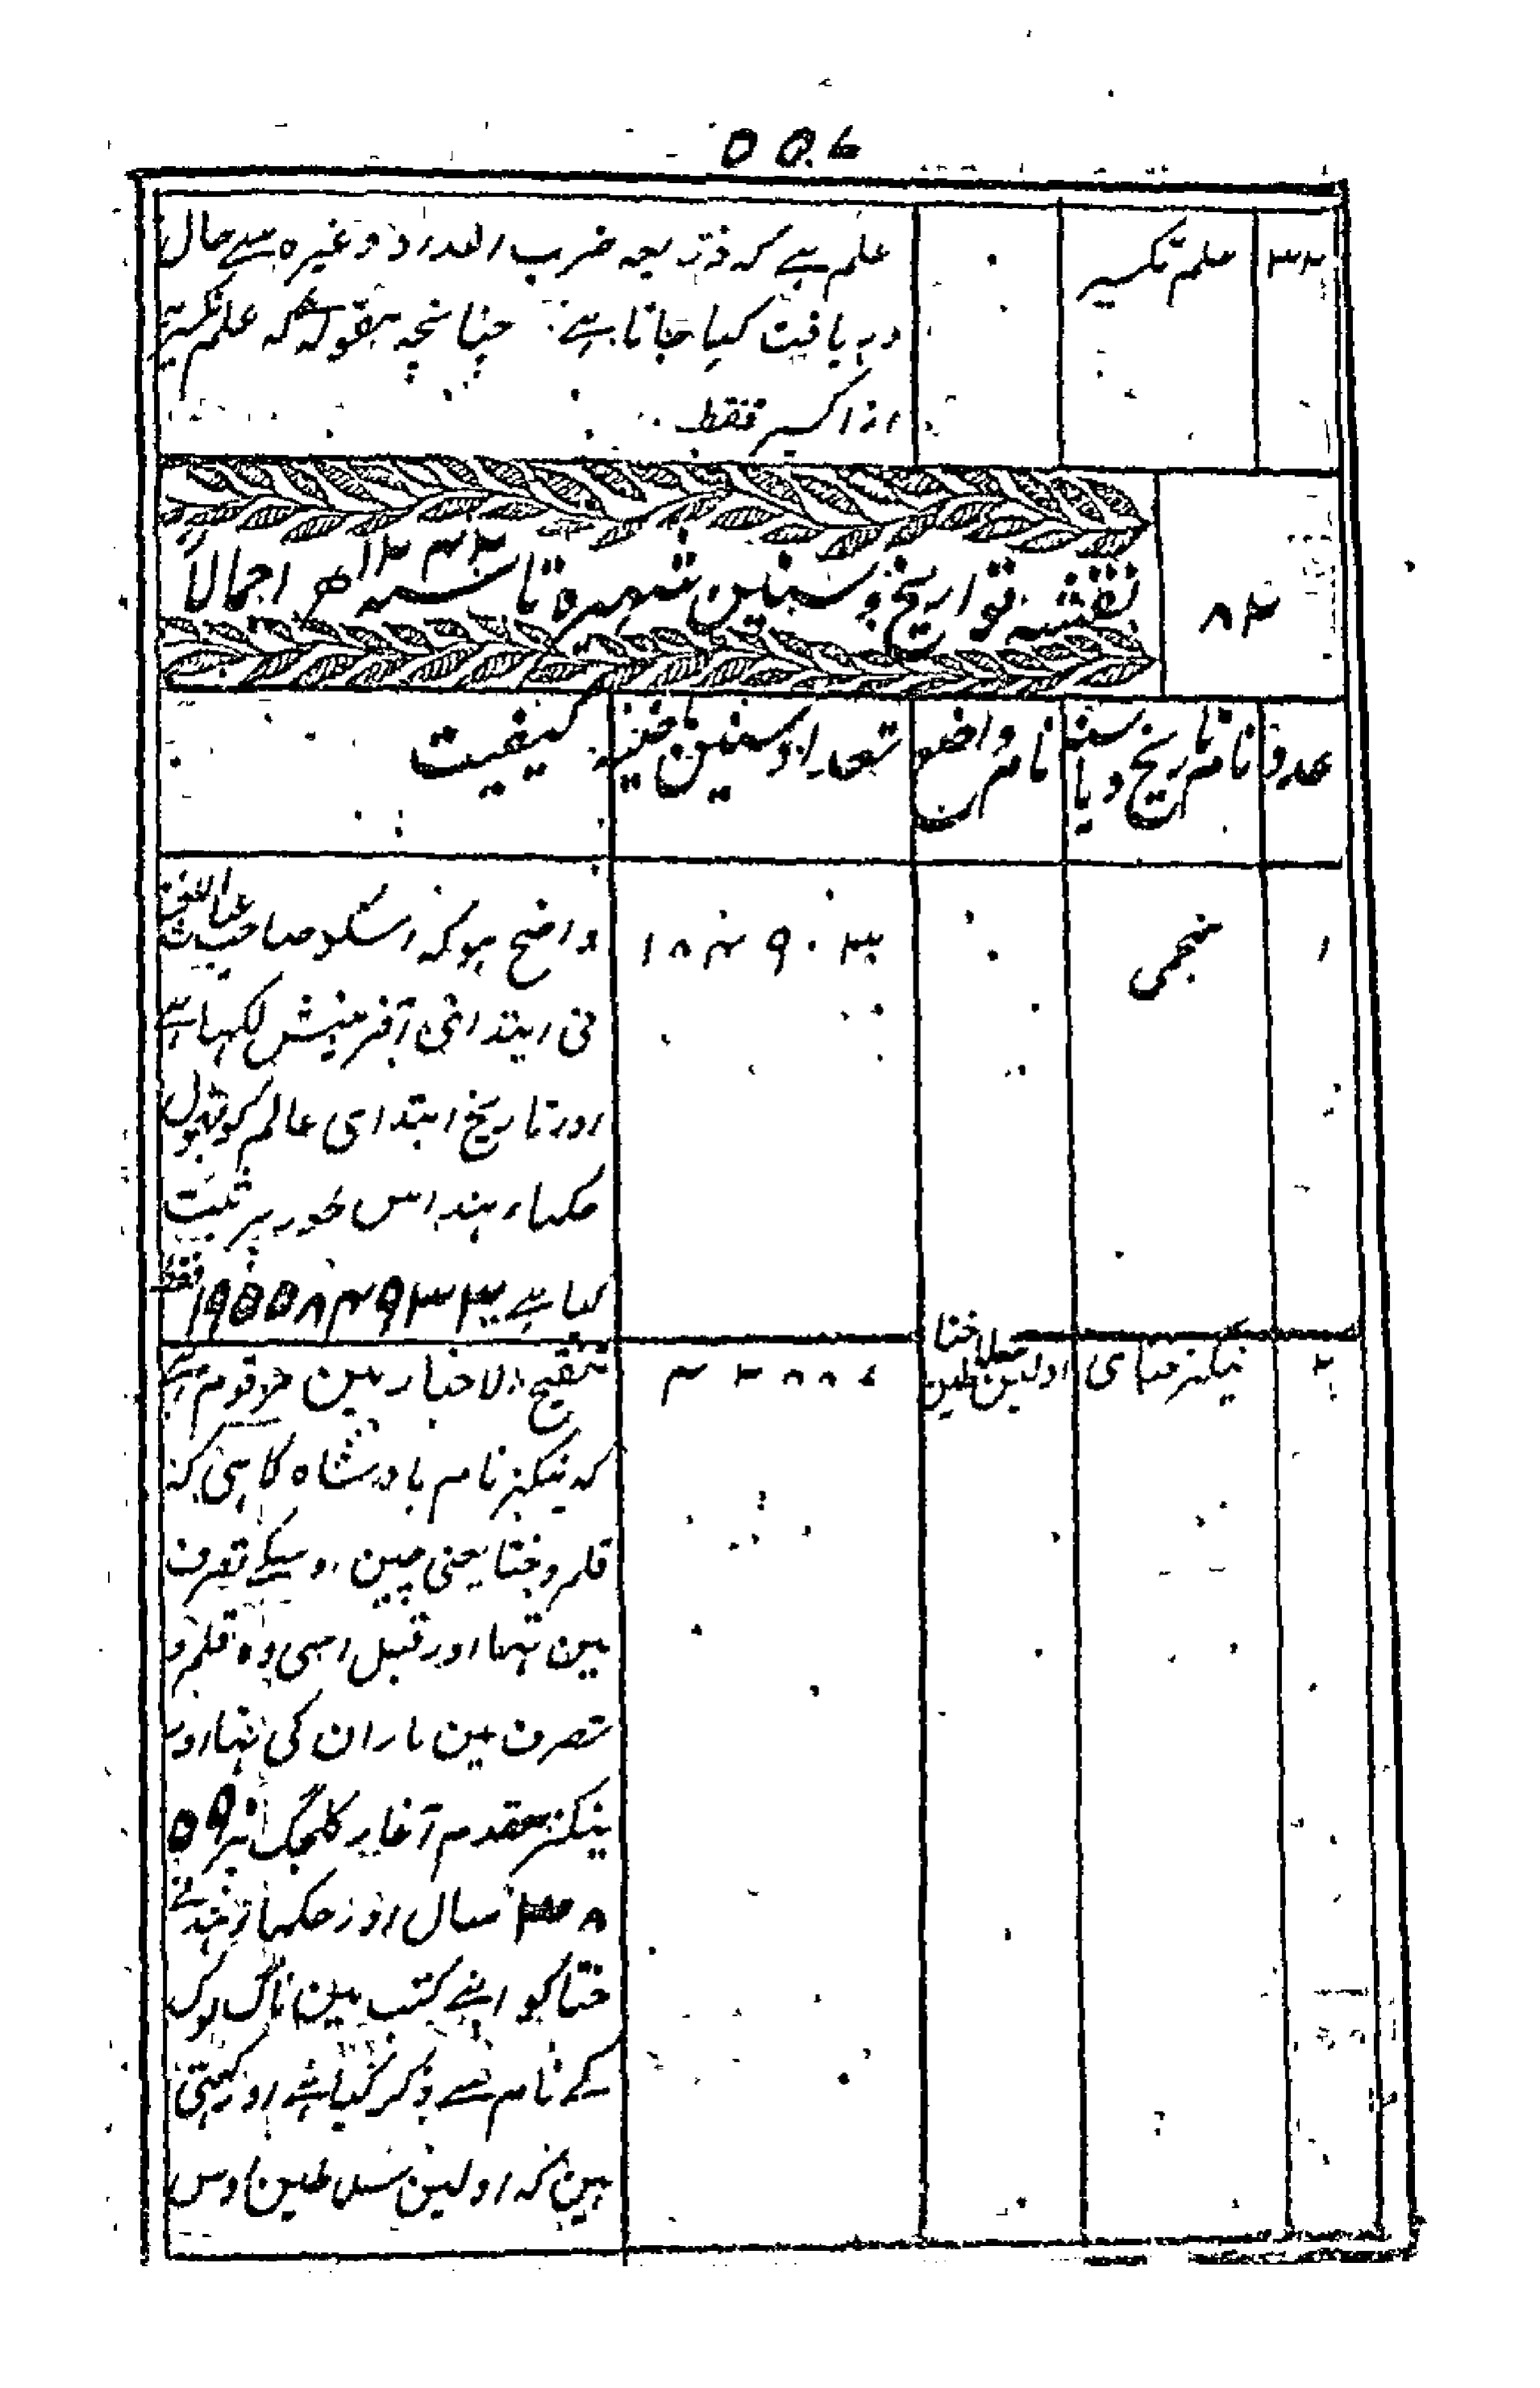 ۵۵۶
۳۲ علم تکسیر علم ہے کہ ذریعہ ضرب اعداد وغیرہ سے حال
دریافت کیا جاتا ہے چنانچہ مقولہ کہ علم تکسیر
از اکسیر فقط
۸۴ نقشہ تواریخ وسنین شہرہ تا سنہ ۱۳۴۳ھ اجمالاً
عدد نام تاریخ ویا سنہ نام واضع تعداد سنین ماضیہ کیفیت
۱ منجمی ۱۸۴۹۰۳ واضح ہو کہ اسکو صاحب غیاث اللغات
نی ابتدائی آفرینش لکہا ہے
اور تاریخ ابتدای عالم کو بقول
حکماء ہند اس طور پر ثبت
کیا ہے ۱۹۵۵۸۴۹۳۳ فقط
۲ ینکز ختای اولین سلاطین ختا ۴۲۸۸۶ تنقیح الاخبار مین مرقوم ہے
کہ ینکز نام بادشاہ کا ہی کہ
قلمرو ختا یعنی چین اوسکے تصرف
مین تہا اور قبل اسی وہ قلمرو
تصرف مین ماران کی تہا اور
ینکز مقدم آغاز کلجگ بر ۵۹
۳۸ سال اور حکماء ہند نے
ختا کو اپنے کتب مین ناگ لوک
کے نام سے ذکر کیا ہے اور کہتی
ہین کہ اولین سلاطین اوس